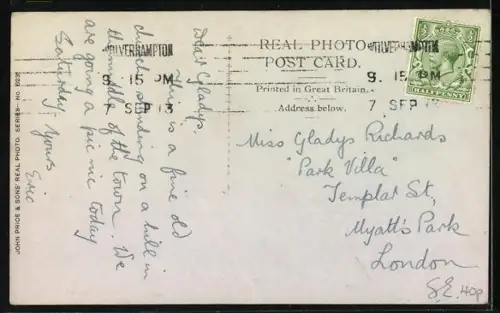 WOLVERHAMPTON
9. 15 PM
7 SEP 13
WOLVERHAMPTON
9. 15 PM
7 SEP 13
HALFPENNY
REAL PHOTO
POST CARD.
Printed in Great Britain.
Address below.
Dear Gladys,
This is a fine old
church standing on a hill in
the middle of the town. We
are going a pic nic today
Saturday. Yours
Eric
Miss Gladys Richards
"Park Villa"
Templar St,
Myatt's Park
London
S.E.
40p
JOHN PRICE & SONS' REAL PHOTO. SERIES-No.